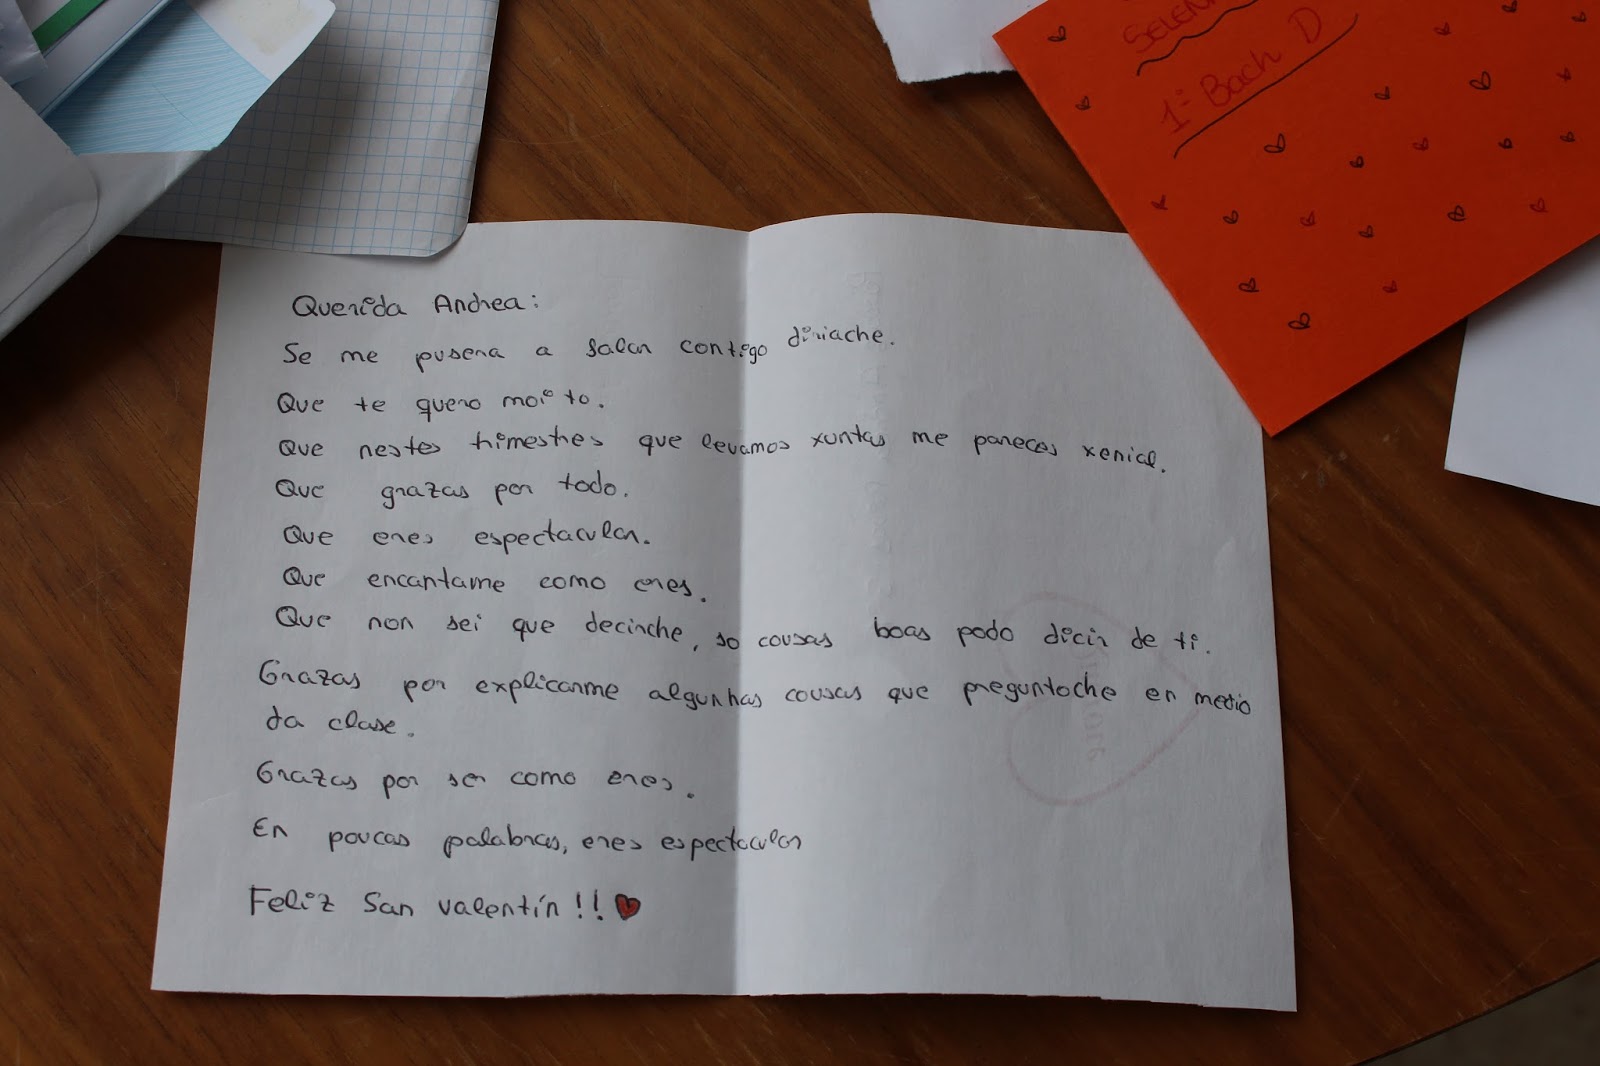 1º Bach D
Querida Andrea:
Se me pusera a falar contigo diriache.
Que te quero moito.
Que nestes trimestres que levamos xuntas me pareces xenial.
Que grazas por todo.
Que eres espectacular.
Que encantame como eres.
Que non sei que decirche, so cousas boas podo dicir de ti.
Grazas por explicarme algunhas cousas que preguntoche en medio
da clase.
Grazas por ser como eres.
En poucas palabras, eres espectacular
Feliz San Valentín!!